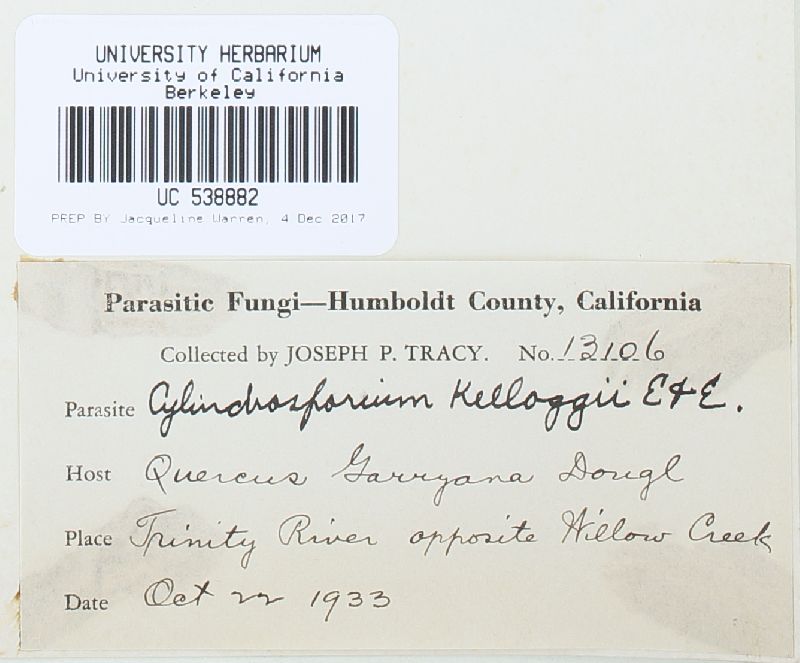 UNIVERSITY HERBARIUM
University of California
Berkeley
UC 538882
PREP BY Jacqueline Warren, 4 Dec 2017
Parasitic Fungi—Humboldt County, California
Collected by JOSEPH P. TRACY. No. 13106
Parasite Cylindrosporium Kelloggii E & E.
Host Quercus Garryana Dougl
Place Trinity River opposite Willow Creek
Date Oct 22 1933